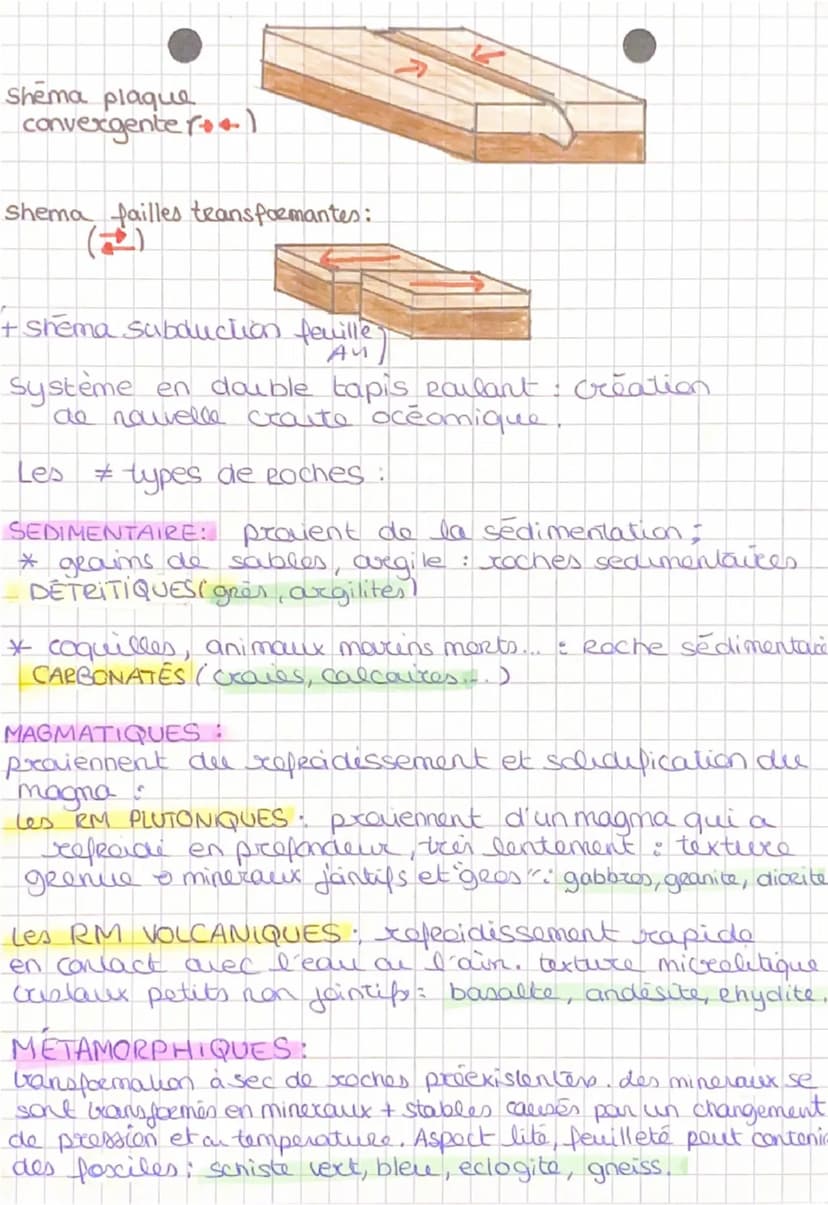 shēma plaque
convergente (→←)
shema failles transformantes :
(⇄)
+ shēma subduction feuille
A4
système en double tapis roulant : création
de nouvelle croute océanique.
Les ≠ types de roches :
SEDIMENTAIRE : provient de la sédimentation ;
* grains de sables, argile : roches sedimentaires
DÉTRITIQUES (grès, argilites)
* coquilles, animaux marins morts... : Roche sédimentair
CARBONATÉS (craies, calcaires...)
MAGMATIQUES :
proviennent du refroidissement et solidification du
magna :
Les RM PLUTONIQUES : proviennent d'un magma qui a
refroidi en profondeur, très lentement : texture
grenue → mineraux jointifs et "gros" : gabbros, granite, diorite
Les RM VOLCANIQUES : refroidissement rapide
en contact avec l'eau ou l'air. texture microlitique
cristaux petits non jointifs : basalte, andésite, rhyolite.
MÉTAMORPHIQUES :
transformation à sec de roches préexistentes. des mineraux se
sont transformés en mineraux + stables causés par un changement
de pression et ou temperature. Aspect lité, feuilleté peut contenir
des fossiles : schiste vert, bleu, eclogite, gneiss.